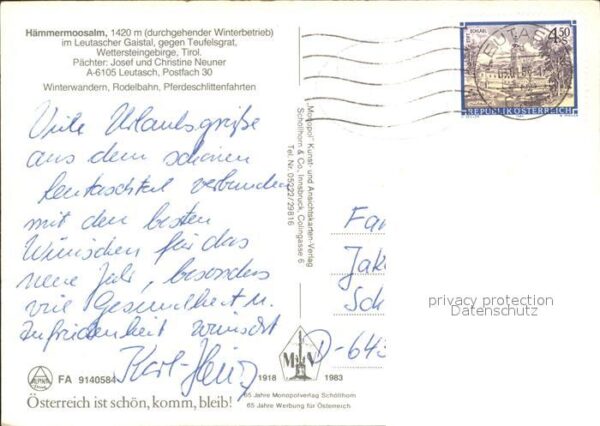 Hämmermoosalm, 1420 m (durchgehender Winterbetrieb)
im Leutascher Gaistal, gegen Teufelsgrat,
Wettersteingebirge, Tirol.
Pächter: Josef und Christine Neuner
A-6105 Leutasch, Postfach 30
Winterwandern, Rodelbahn, Pferdeschlittenfahrten
Viele Urlaubsgrüße
aus dem schönen
Leutaschtal verbunden
mit den besten
Wünschen für das
neue Jahr, besonders
viel Gesundheit u.
Zufriedenheit wünscht
Karl-Heinz
FA 9140584
Österreich ist schön, komm, bleib!
"Monopol" Kunst- und Ansichtskarten-Verlag
Schöllhorn & Co., Innsbruck, Colingasse 6
Tel. Nr. 05222/29816
1918 1983
65 Jahre Monopolverlag Schöllhorn
65 Jahre Werbung für Österreich
STIFT SCHLÄGL
4.50
REPUBLIK ÖSTERREICH
LEUTAS
Fa
Jak
Sch
D-643
privacy protection
Datenschutz